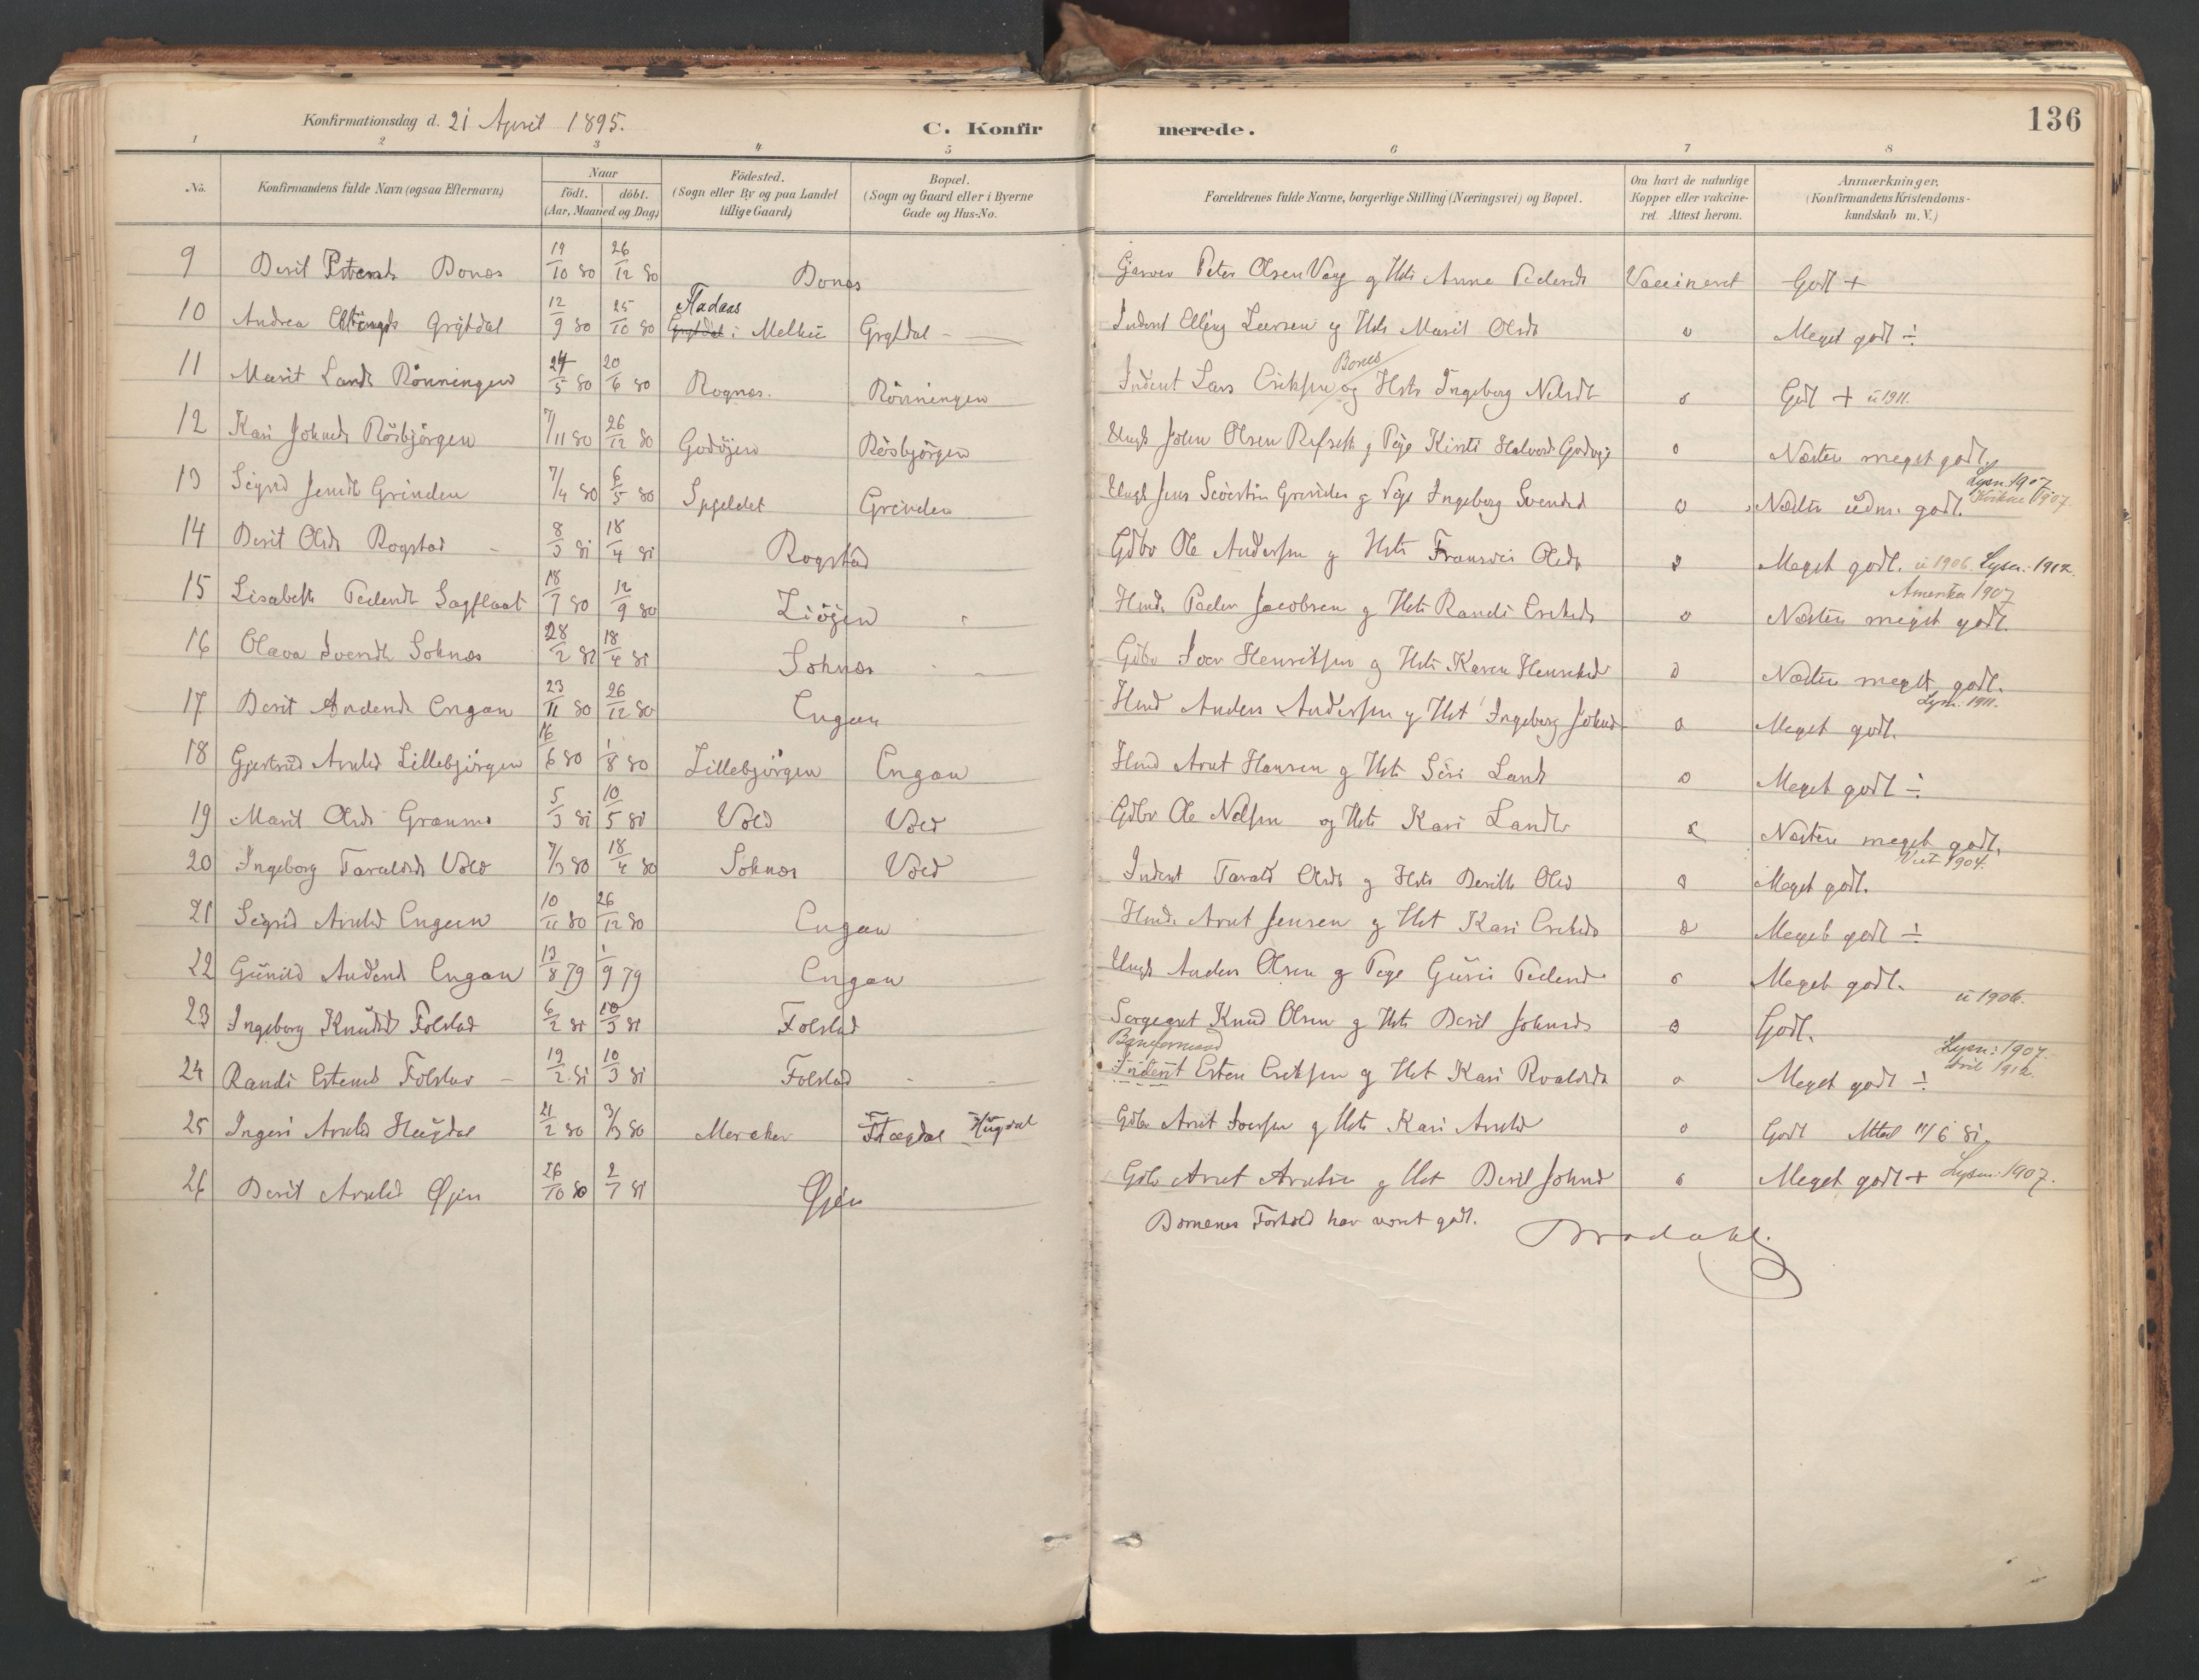 136
Konfirmationsdag d. 21 April 1895.
C. Konfir merede.
1 2 3 4 5 6 7 8
No. Konfirmandens fulde Navn (ogsaa Efternavn) Naar födt. döbt. (Aar, Maaned og Dag) Födested. (Sogn eller By og paa Landet tillige Gaard) Bopæl. (Sogn og Gaard eller i Byerne Gade og Hus-No. Forældrenes fulde Navne, borgerlige Stilling (Næringsvei) og Bopæl. Om havt de naturlige Kopper eller vakcineret. Attest herom. Anmærkninger. (Konfirmandens Kristendomskundskab m. V.)
9 Berit Petersd. Bones 19/10 80 26/12 80 Bones Garver Peter Olsen Vang og Hst Anne Pedersd Vaccineret Godt +
10 Andrea Ellingsd Grytdal 12/9 80 25/10 80 Fladaas Grytdal i Melhu Grytdal Inderst Elling Larsen og Hst Marit Olsd o Meget godt ÷
11 Marit Larsd Rönningen 24/5 80 20/6 80 Rognes. Rönningen Inderst Lars Eriksen Bones og Hst Ingeborg Nelsdt o Godt + u 1911.
12 Kari Johnsd Rösbjörgen 7/11 80 26/12 80 Godöien Rösbjörgen Ungk John Olsen Refseth og Pige Kirsti Halvorsd Godöi o Næsten meget godt.
13 Sigrid Jensdt Grinden 7/4 80 6/5 80 Spjeldet Grinden Ungk Jens Grinden og Pige Ingeborg Svendsd o Næsten udm. godt. Lysn. 1907 Kvikne 1907.
14 Berit Olsd Rogstad 8/3 81 18/4 81 Rogstad Gdbr Ole Andersen og Hst Olsdt o Meget godt. u 1906. Lysn: 1912.
15 Lisabeth Pedersdt Sagflaat 18/7 80 12/9 80 Liöjen Husm. Peder Jacobsen og Hst Randi Eriksd o Næsten meget godt. Amerika 1907
16 Olava Iversdt Soknes 28/2 81 18/4 81 Soknes Gdbr Iver Henriksen og Hst Karen Henriksd o Næsten meget godt.
17 Berit Andersd Engan 23/11 80 26/12 80 Engan Husm Anders Andersen og Hst Ingeborg Johnsd o Meget godt. Lysn. 1911.
18 Gjertrud Arntsd Lillebjörgen 16/6 80 1/8 80 Lillebjörgen Engan Husm Arnt Hansen og Hst Siri Larsd o Meget godt ÷
19 Marit Olsd Granmo 5/3 81 10/5 81 Vold Vold Gdbr Ole Nelsen og Hst Kari Larsdtr Næsten meget godt.
20 Ingeborg Taraldsd Vold 7/3 80 18/4 80 Soknes Vold Inderst Tarald Olsdt og Hst Berith Olsd o Meget godt. Viet 1904.
21 Sigrid Arntsd Engan 10/11 80 26/12 80 Engan Husm. Arnt Jensen og Hst Kari Eriksd o Meget godt ÷
22 Gunild Andersd Engan 13/8 79 1/9 79 Engan Ungk Anders Olsen og Pige Guru Pedersd o Meget godt.
23 Ingeborg Knudsd Folstad 6/2 81 10/3 81 Folstad Knud Olsen og Hst Berit Johnsd o Godt. u 1906.
24 Randi Estensd Folstad 19/2 81 10/3 81 Folstad Inderst Esten Eriksen og Hst Kari Roaldsd o Meget godt ÷ Lysn: 1907. 1912.
25 Ingeri Arntsd Haugdal 21/2 80 3/3 80 Meraker Haugdal Gdbr Arnt Iversen og Hst Kari Arntsd o Godt Attest 11/6 81.
26 Berit Arntsd Öjen 26/10 80 2/1 81 Öjen Gdbr Arnt Arntsen og Hst Berit Johnsd o Meget godt + Lysn: 1907.
Börnenes Forhold har været godt. Brodahl.